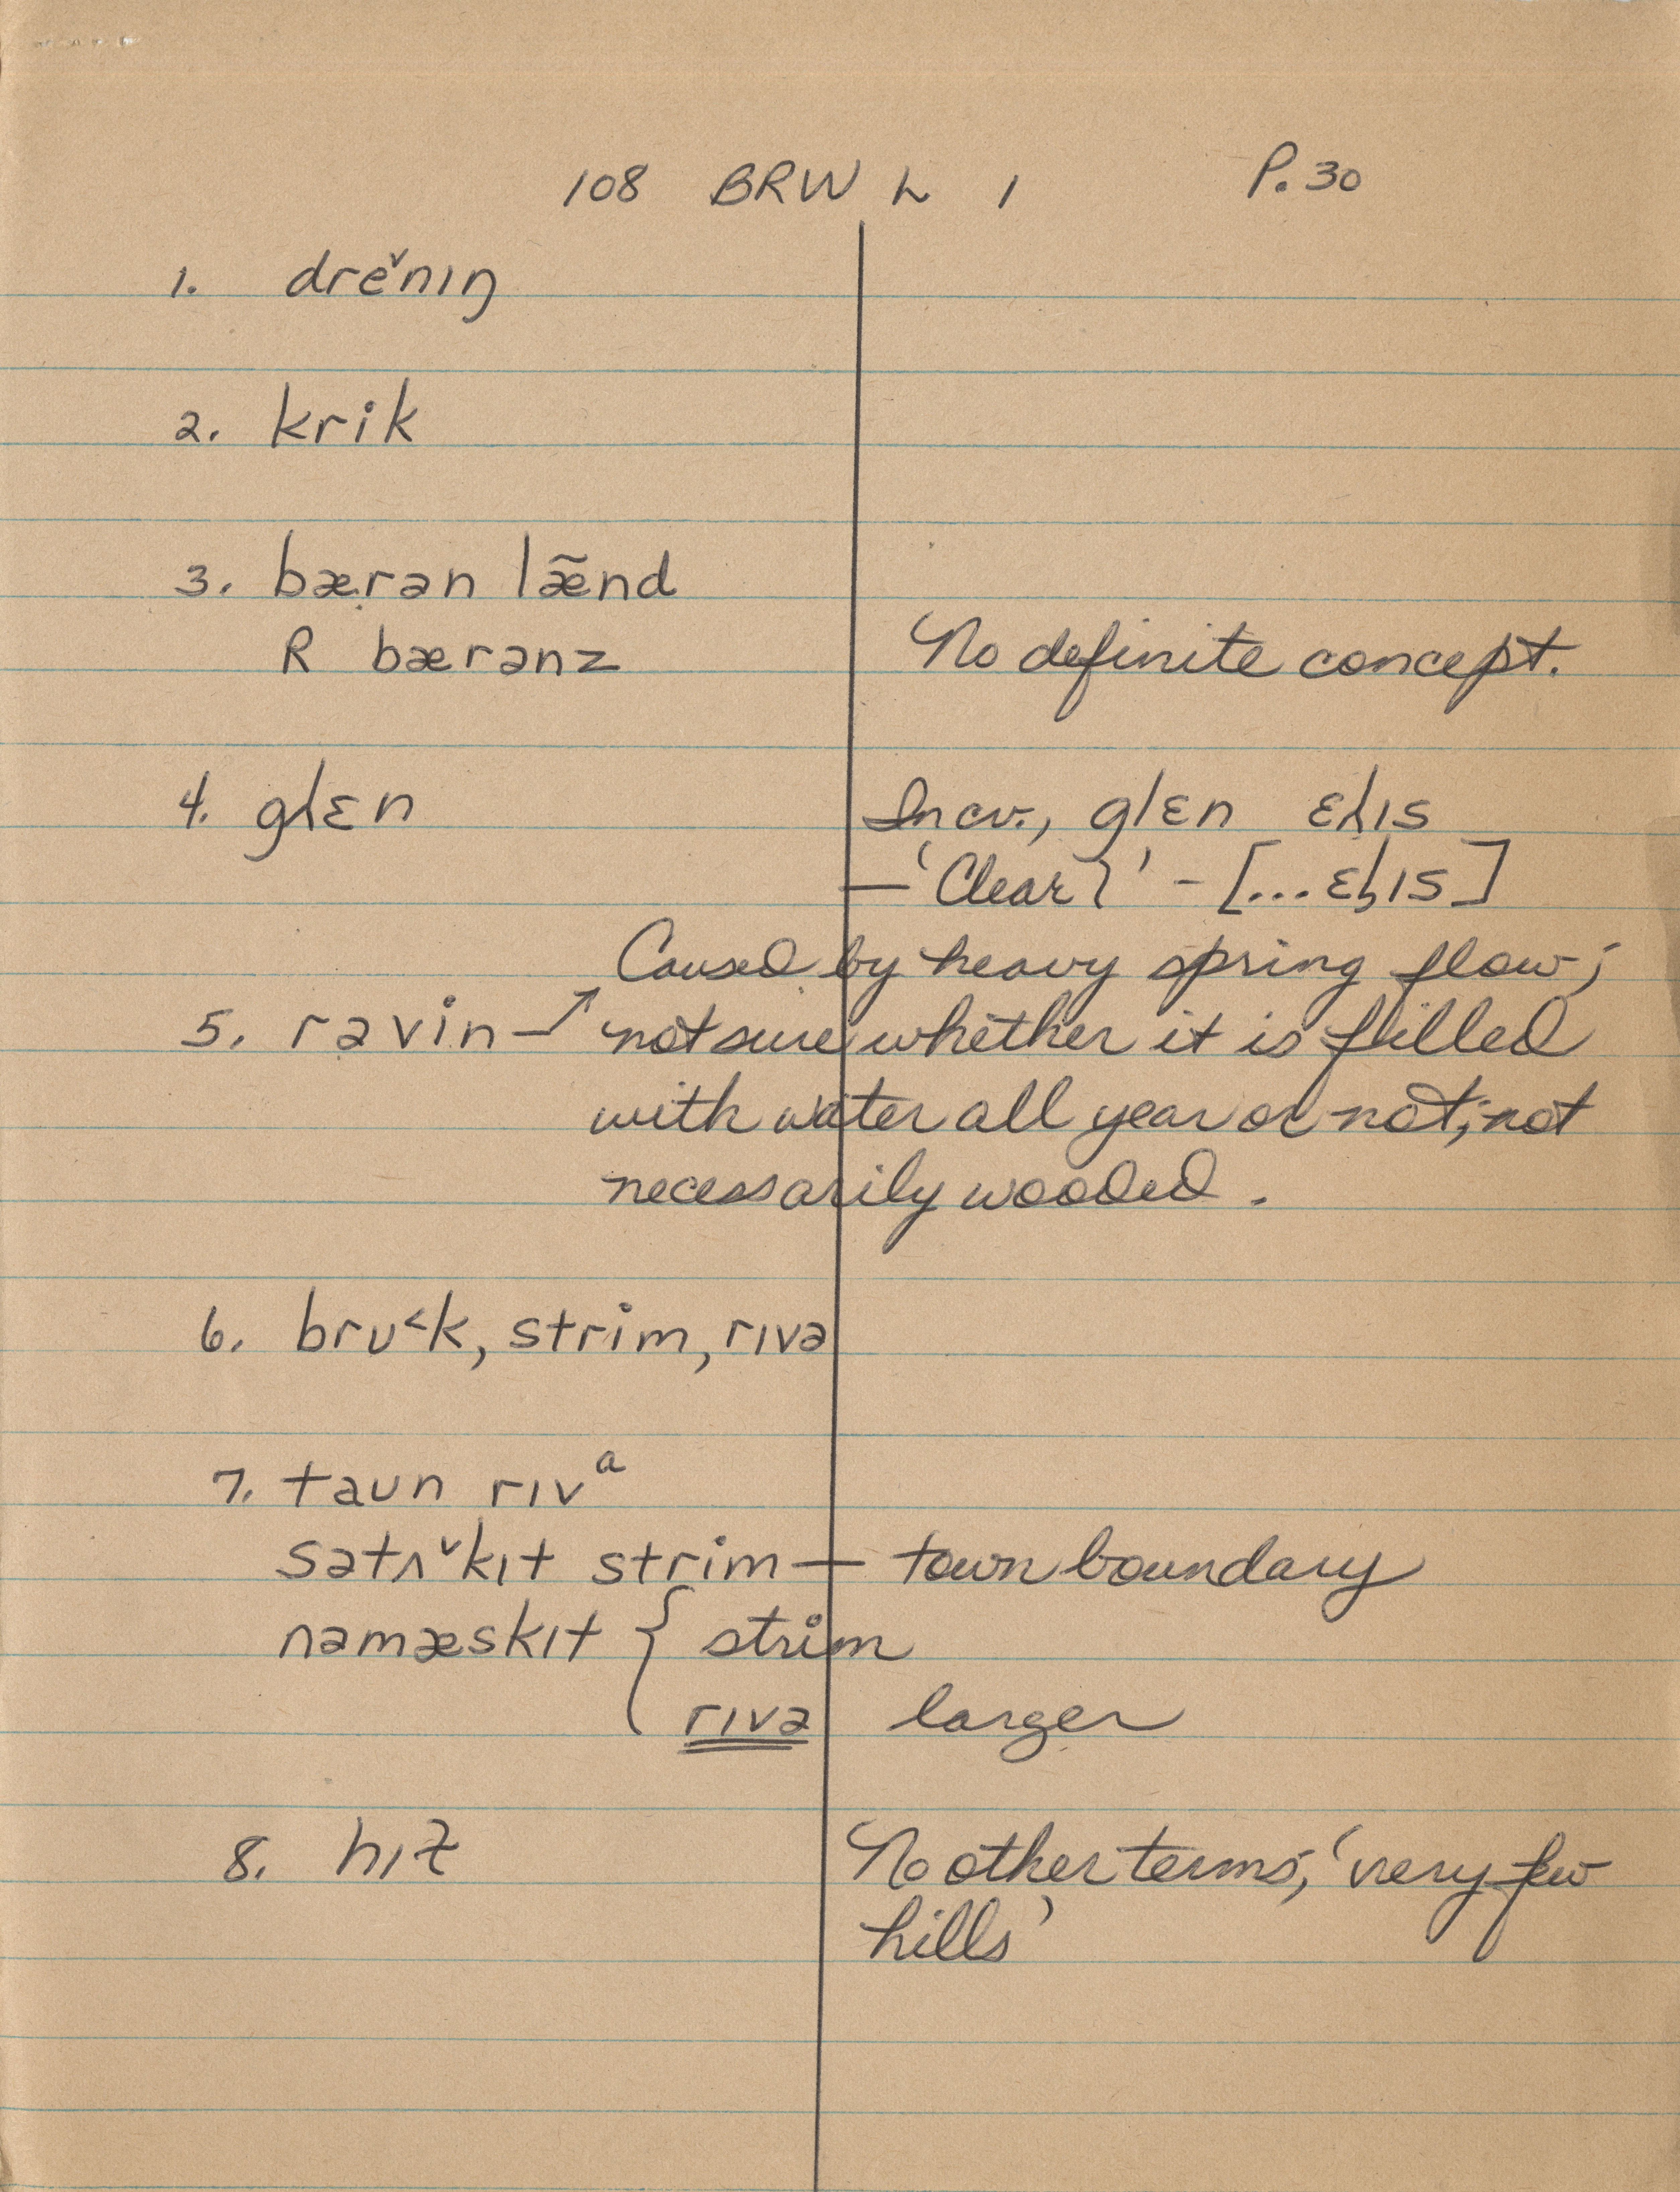 108 BRW L 1 P. 30
1. dre˅nɪŋ
2. krik
3. bærən læ̃nd
R bærənz No definite concept.
4. glɛn In cv., glɛn ɛlɪs
— 'Clear l' - [...ɛlɪs]
Caused by heavy spring flow;
5. rəvin → not sure whether it is filled
with water all year or not; not
necessarily wooded.
6. brʊ˂k, strim, rɪvə
7. taʊn rɪvᵊ
sətʌ˅kɪt strim — town boundary
nəmæskɪt { strim
rɪvə larger
8. hɪɫ No other terms; 'very few
hills'